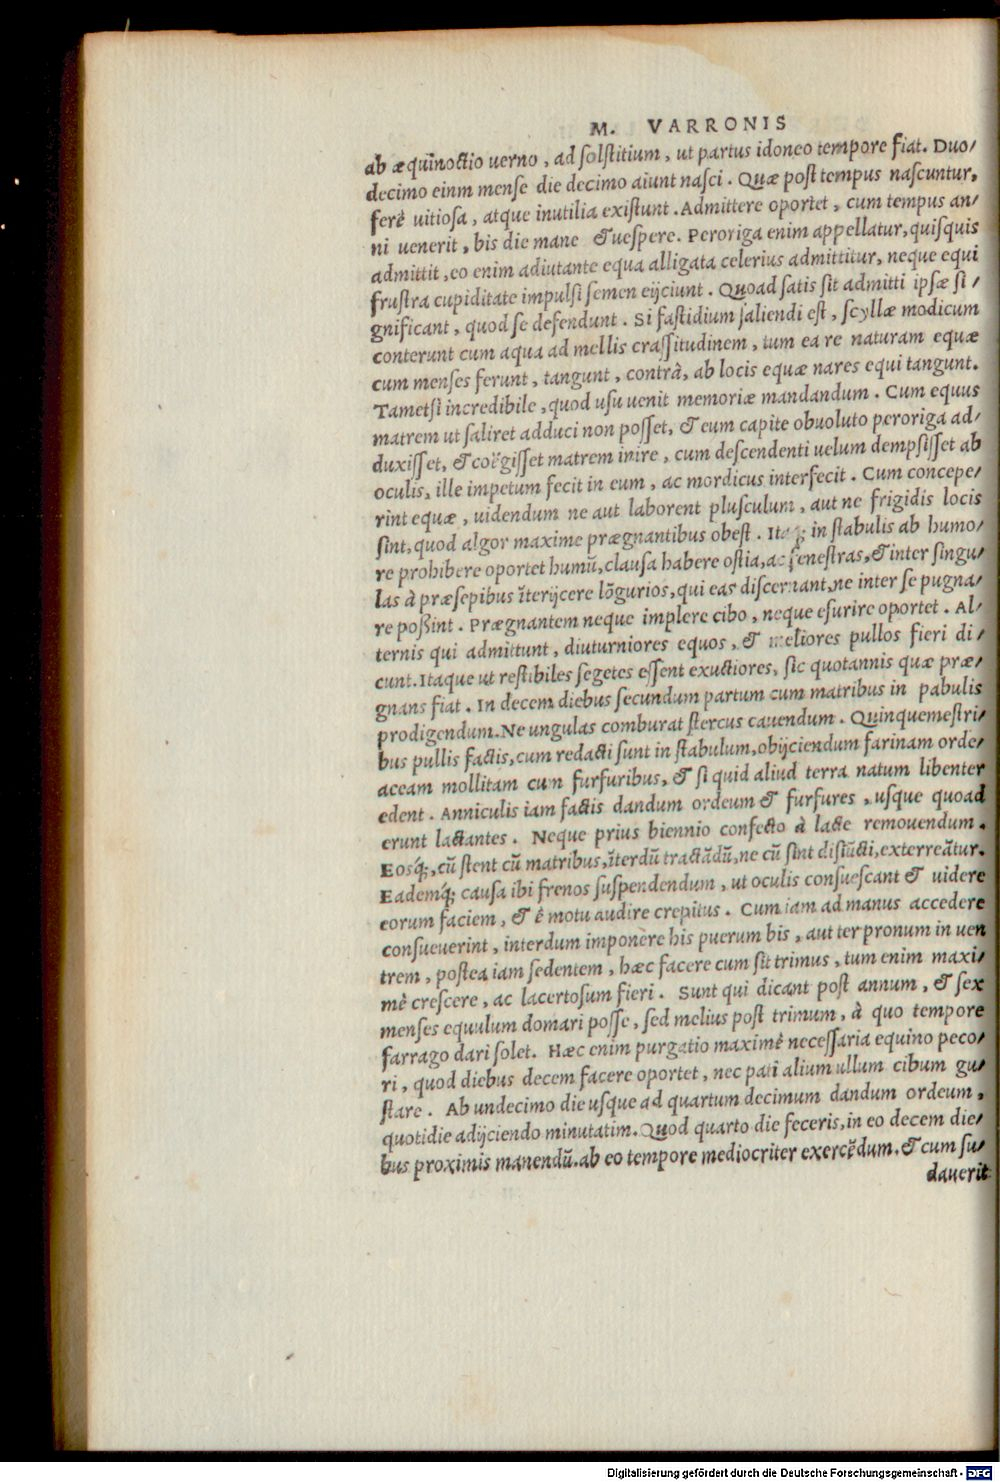 M. VARRONIS
ab æquinoctio uerno, ad solstitium, ut partus idoneo tempore fiat. Duo/
decimo einm mense die decimo aiunt nasci. Quæ post tempus nascuntur,
ferè uitiosa, atque inutilia existunt. Admittere oportet, cum tempus an/
ni uenerit, bis die mane & uespere. Peroriga enim appellatur, quisquis
admittit, eo enim adiutante equa alligata celerius admittitur, neque equi
frustra cupiditate impulsi semen eijciunt. Quoad satis sit admitti ipsæ si/
gnificant, quod se defendunt. Si fastidium saliendi est, scyllæ modicum
conterunt cum aqua ad mellis crassitudinem, tum ea re naturam equæ
cum menses ferunt, tangunt, contrà, ab locis equæ nares equi tangunt.
Tametsi incredibile, quod usu uenit memoriæ mandandum. Cum equus
matrem ut saliret adduci non posset, & eum capite obuoluto peroriga ad/
duxisset, & coëgisset matrem inire, cum descendenti uelum dempsisset ab
oculis, ille impetum fecit in eum, ac mordicus interfecit. Cum concepe/
rint equæ, uidendum ne aut laborent plusculum, aut ne frigidis locis
sint, quod algor maxime prægnantibus obest. Itaq; in stabulis ab humo/
re prohibere oportet humũ, clausa habere ostia, ac fenestras, & inter singu/
las à præsepibus ĩterijcere lõgurios, qui eas discernant, ne inter se pugna/
re poßint. Prægnantem neque implere cibo, neque esurire oportet. Al/
ternis qui admittunt, diuturniores equos, & meliores pullos fieri di/
cunt. Itaque ut restibiles segetes essent exuctiores, sic quotannis quæ præ/
gnans fiat. In decem diebus secundum partum cum matribus in pabulis
prodigendum. Ne ungulas comburat stercus cauendum. Quinquemestri/
bus pullis factis, cum redacti sunt in stabulum, obijciendum farinam orde/
aceam mollitam cum furfuribus, & si quid aliud terra natum libenter
edent. Anniculis iam factis dandum ordeum & furfures, usque quoad
erunt lactantes. Neque prius biennio confecto à lacte remouendum.
Eosq́;, cũ stent cũ matribus, ĩterdũ tractãdũ, ne cũ sint disiũcti, exterreãtur.
Eademq́; causa ibi frenos suspendendum, ut oculis consuescant & uidere
eorum faciem, & è motu audire crepitus. Cum iam ad manus accedere
consueuerint, interdum imponere his puerum bis, aut ter pronum in uen
trem, postea iam sedentem, hæc facere cum sit trimus, tum enim maxi/
mè crescere, ac lacertosum fieri. Sunt qui dicant post annum, & sex
menses equulum domari posse, sed melius post trimum, à quo tempore
farrago dari solet. Hæc enim purgatio maximè necessaria equino peco/
ri, quod diebus decem facere oportet, nec pati alium ullum cibum gu/
stare. Ab undecimo die usque ad quartum decimum dandum ordeum,
quotidie adijciendo minutatim. Quod quarto die feceris, in eo decem die/
bus proximis manendũ. ab eo tempore mediocriter exercẽdum. & cum su/
dauerit
Digitalisierung gefördert durch die Deutsche Forschungsgemeinschaft - DFG